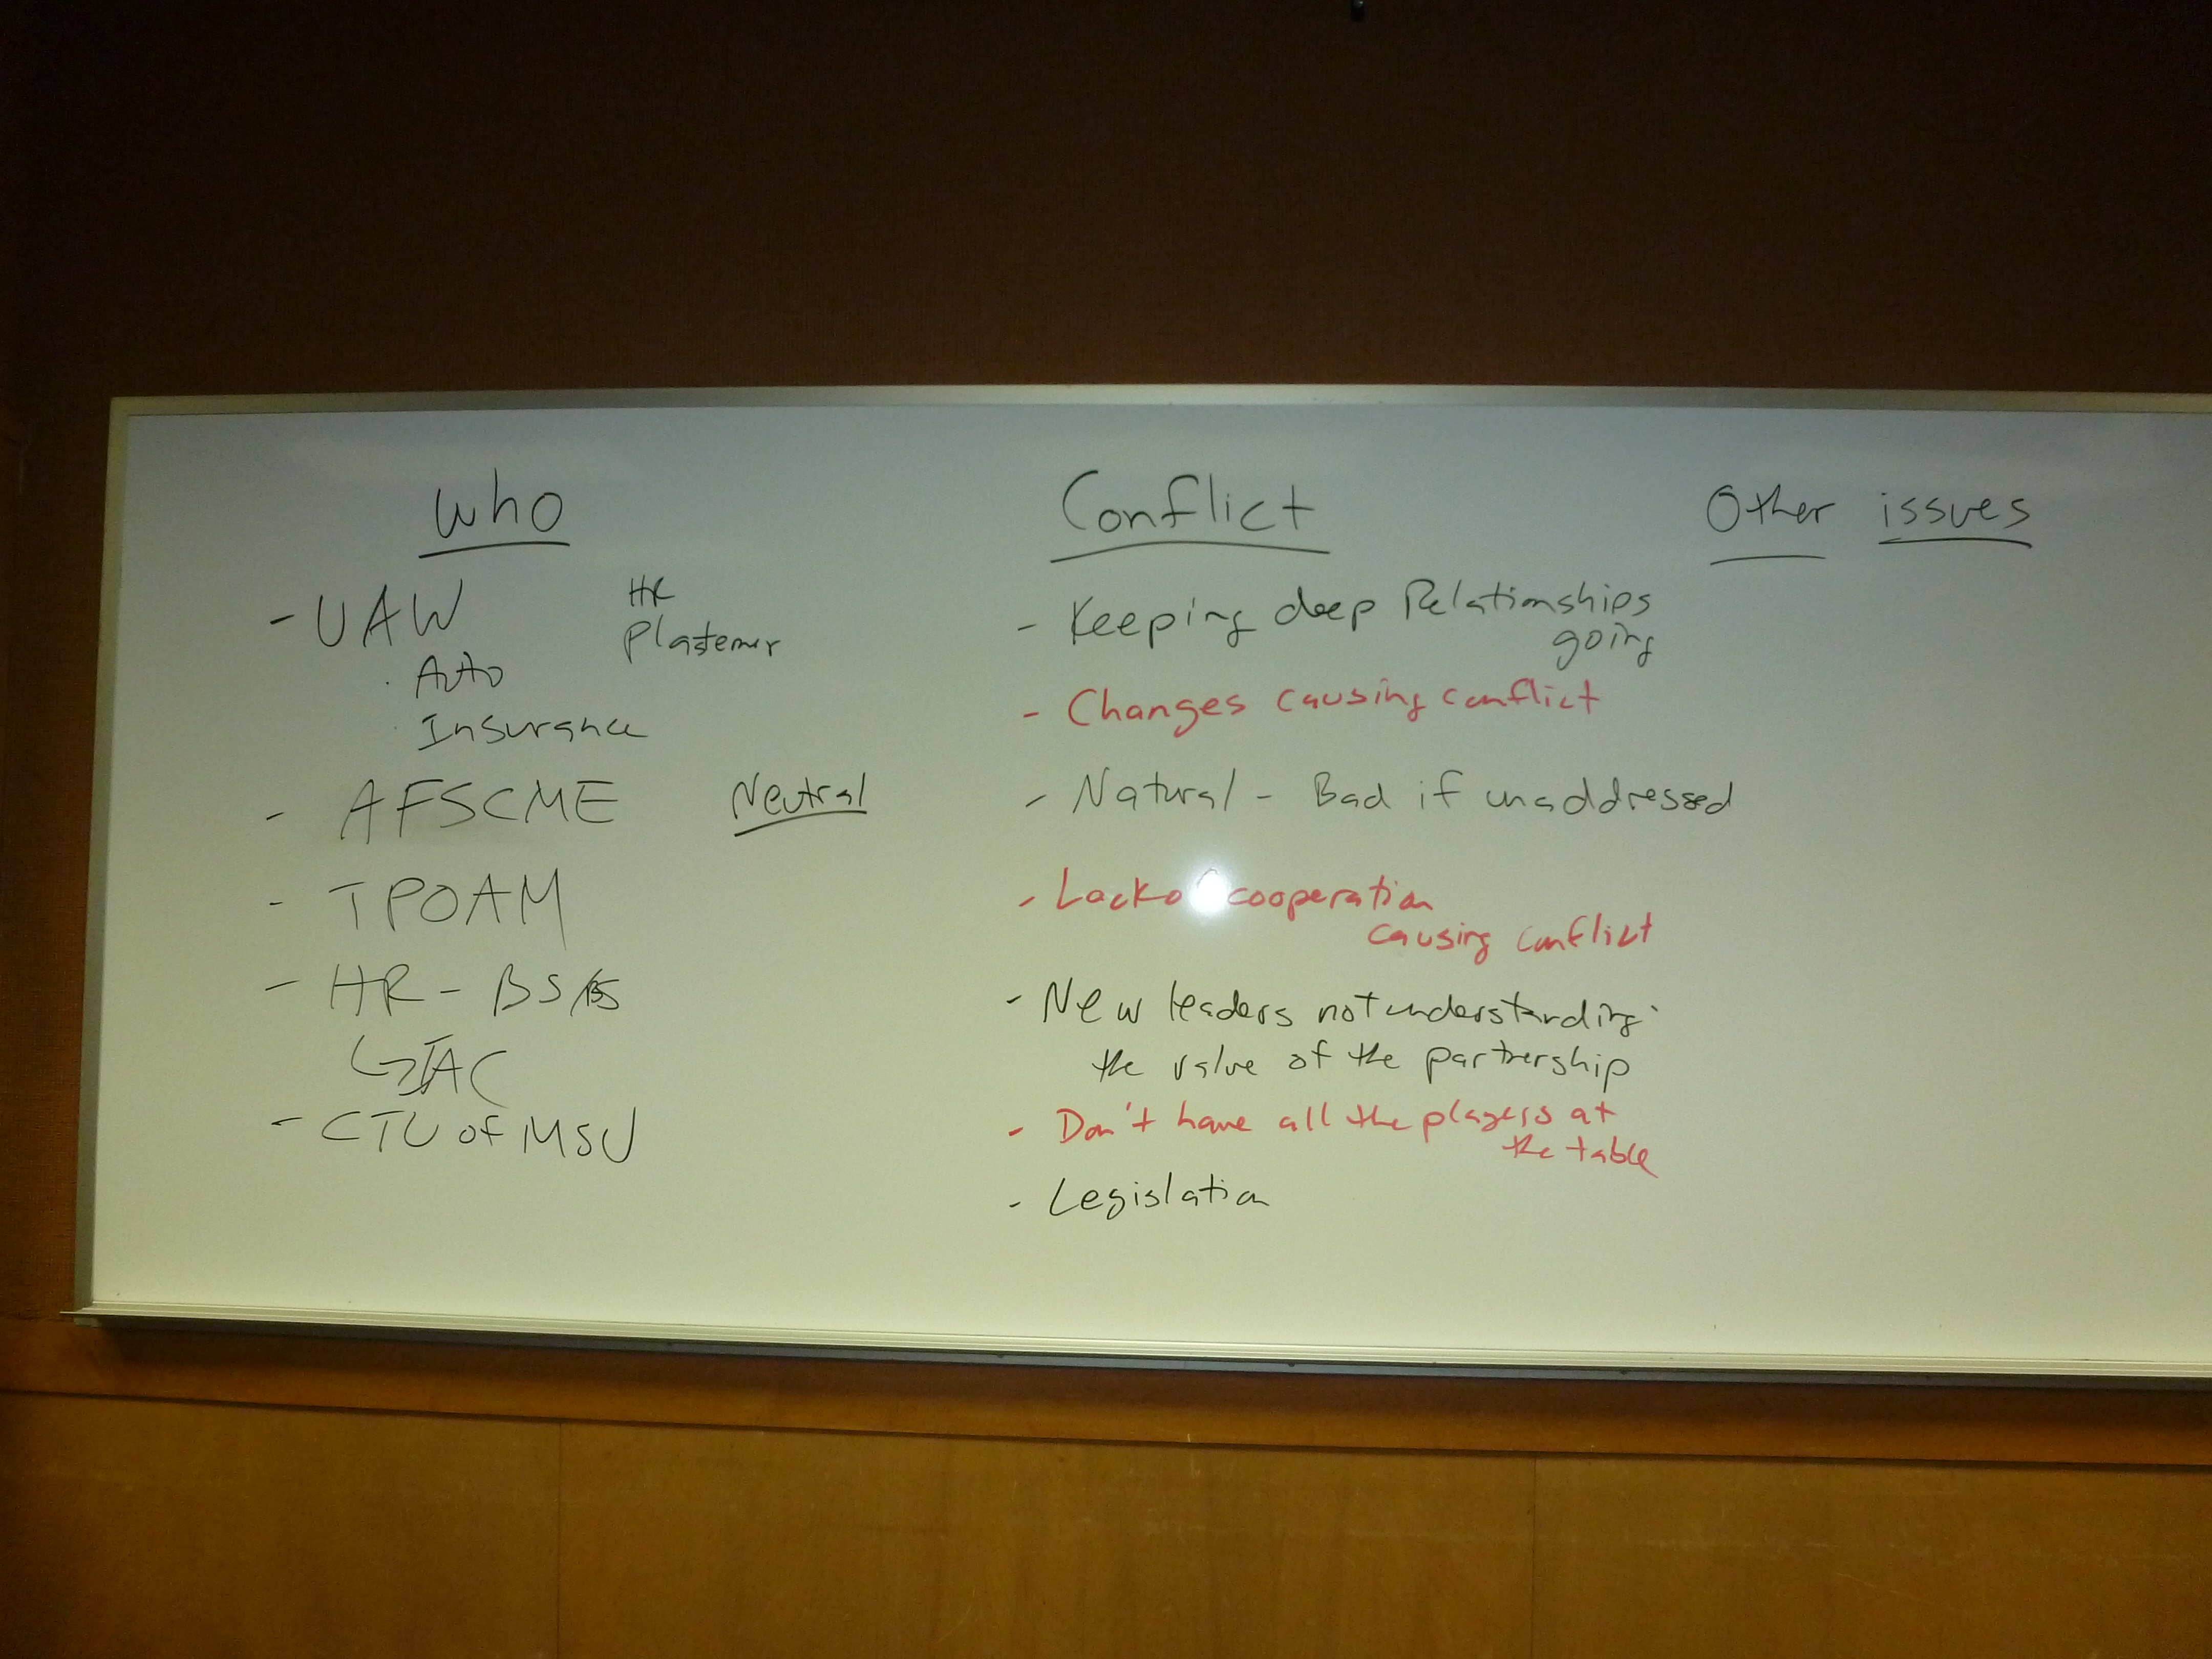 Who
- UAW
HR
Plastemer
· Auto
· Insurance
- AFSCME
Neutral
- TPOAM
- HR - BS/BS
- CTU of MSU
Conflict
- Keeping deep Relationships
going
- Changes causing conflict
- Natural - Bad if unaddressed
- Lack o cooperation
causing conflict
- New leaders not understanding
the value of the partnership
- Don't have all the players at
the table
- Legislation
Other issues